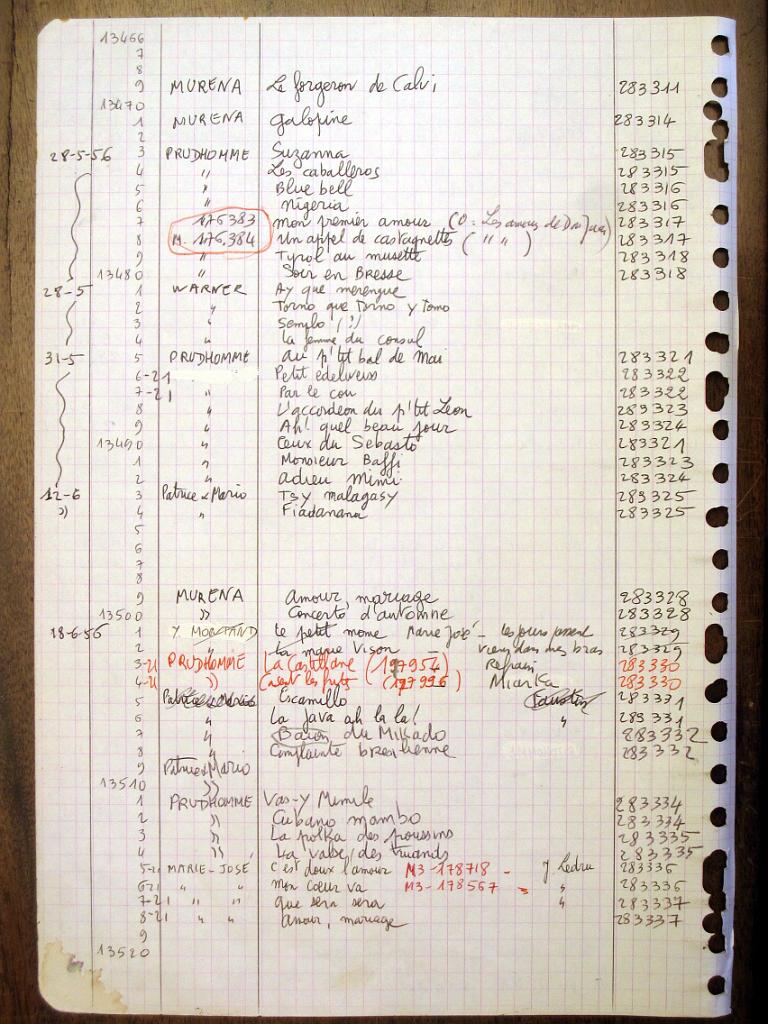 13466
7
8
9 MURENA Le forgeron de Calvi 283311
13470
1 MURENA galopine 283314
2
28-5-56 3 PRUDHOMME Suzanna 283315
4 " Les caballeros 283315
5 " Blue bell 283316
6 " nigeria 283316
7 176383 mon premier amour (O = Les amours de Don Juan) 283317
8 M. 176.384 Un appel de castagnettes ( " " ) 283317
9 " Tyrol au musette 283318
13480 " Soir en Bresse 283318
28-5 1 WARNER Ay que merengue
2 " Torno que Torno y Tomo
3 " Semblo (?)
4 " La femme du consul
31-5 5 PRUDHOMME au p'tit bal de Mai 283321
6-21 Petit edelweiss 283322
7-21 " Par le cou 283322
8 " L'accordeon du p'tit Leon 283323
9 " Ah! quel beau jour 283324
13490 " Ceux du Sebasto 283321
1 " Monsieur Baffi 283323
2 " adieu mimi 283324
12-6 3 Patrice & Mario Tsy malagasy 283325
" 4 " Fiadanana 283325
5
6
7
8
9 MURENA amour, mariage 283328
13500 " Concerto d'automne 283328
18-6-56 1 Y. MONTAND Le petit mome Marie José - les jours passent 283329
2 " La maque Vison - viens dans mes bras 283329
3-21 PRUDHOMME La Castillane (197954) Refrain 283330
4-21 " (197996) Mianka 283330
5 Patrice & Mario Escamillo Faustin 283331
6 " La Java ah la la! " 283331
7 " Baron du Mikado 283332
8 " Complainte bresilienne 283332
9 Patrice & Mario
13510 "
1 PRUDHOMME Vas-y Mimile 283334
2 " Cubano mambo 283334
3 " La polka des poussins 283335
4 " La valse des truands 283335
5-21 MARIE-JOSÉ c'est doux l'amour M3-178718 - J Ledru 283336
6-21 " " mon coeur va M3-178567 - " 283336
7-21 " " que sera sera " 283337
8-21 " " amour, mariage 283337
9
13520